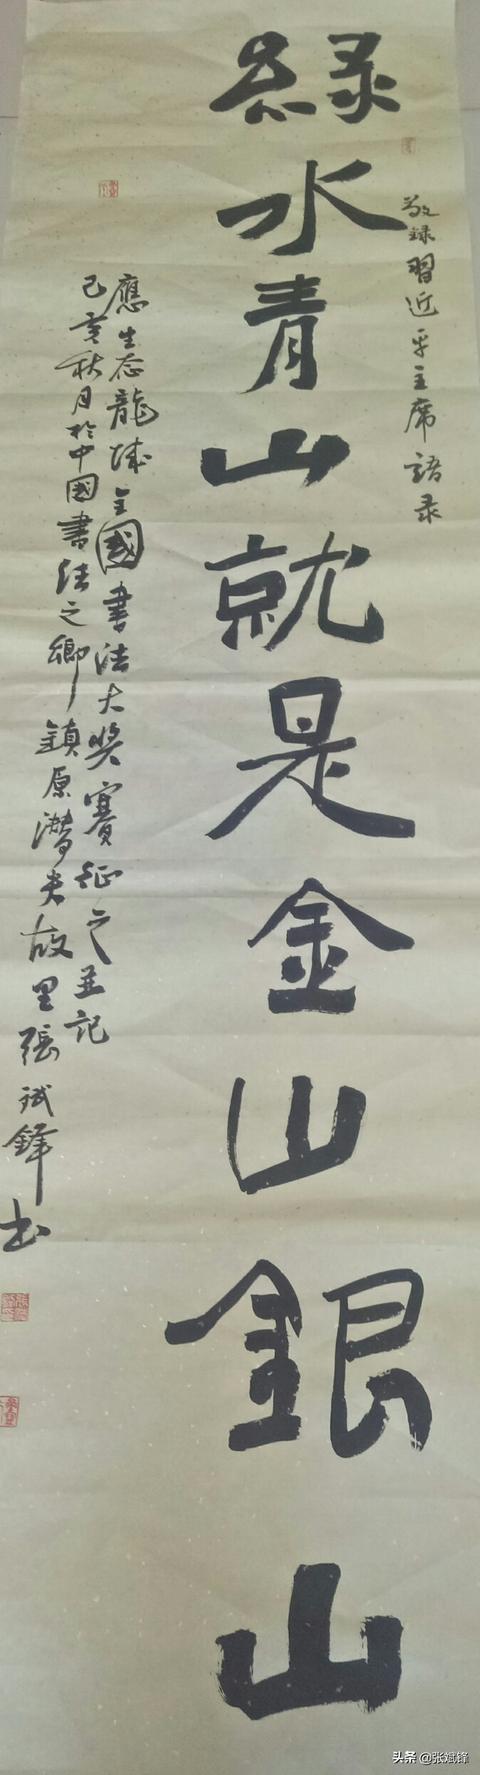 敬録習近平主席語录
綠水青山就是金山銀山
應生态龍城全國書法大奖賽征之並記
己亥秋月於中國書法之鄉鎮原潛夫故里張斌鋒书
头条 @张斌锋